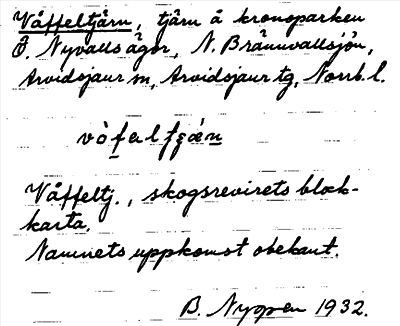 Våffeltjärn, tjärn å kronoparken
Ö. Nyvallsägor, N. Brännvallsjön,
Arvidsjaur sn, Arvidsjaur tg, Norrb. l.
Våffeltj., skogsrevirets block-
karta.
Namnets uppkomst obekant.
B. Nygren 1932.